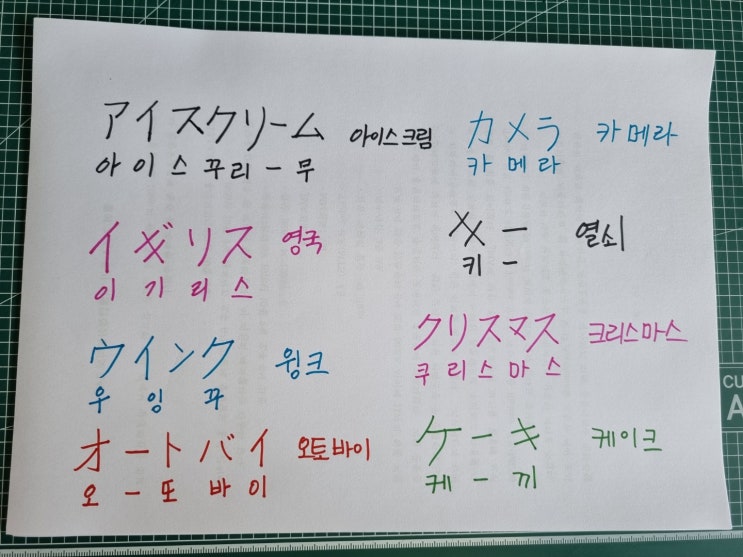 アイスクリーム 아이스크림
아이스꾸리-무
カメラ 카메라
카메라
イギリス 영국
이기리스
キー 열쇠
키-
ウインク 윙크
우잉꾸
クリスマス 크리스마스
쿠리스마스
オートバイ 오토바이
오-또바이
ケーキ 케이크
케-끼
CU
A